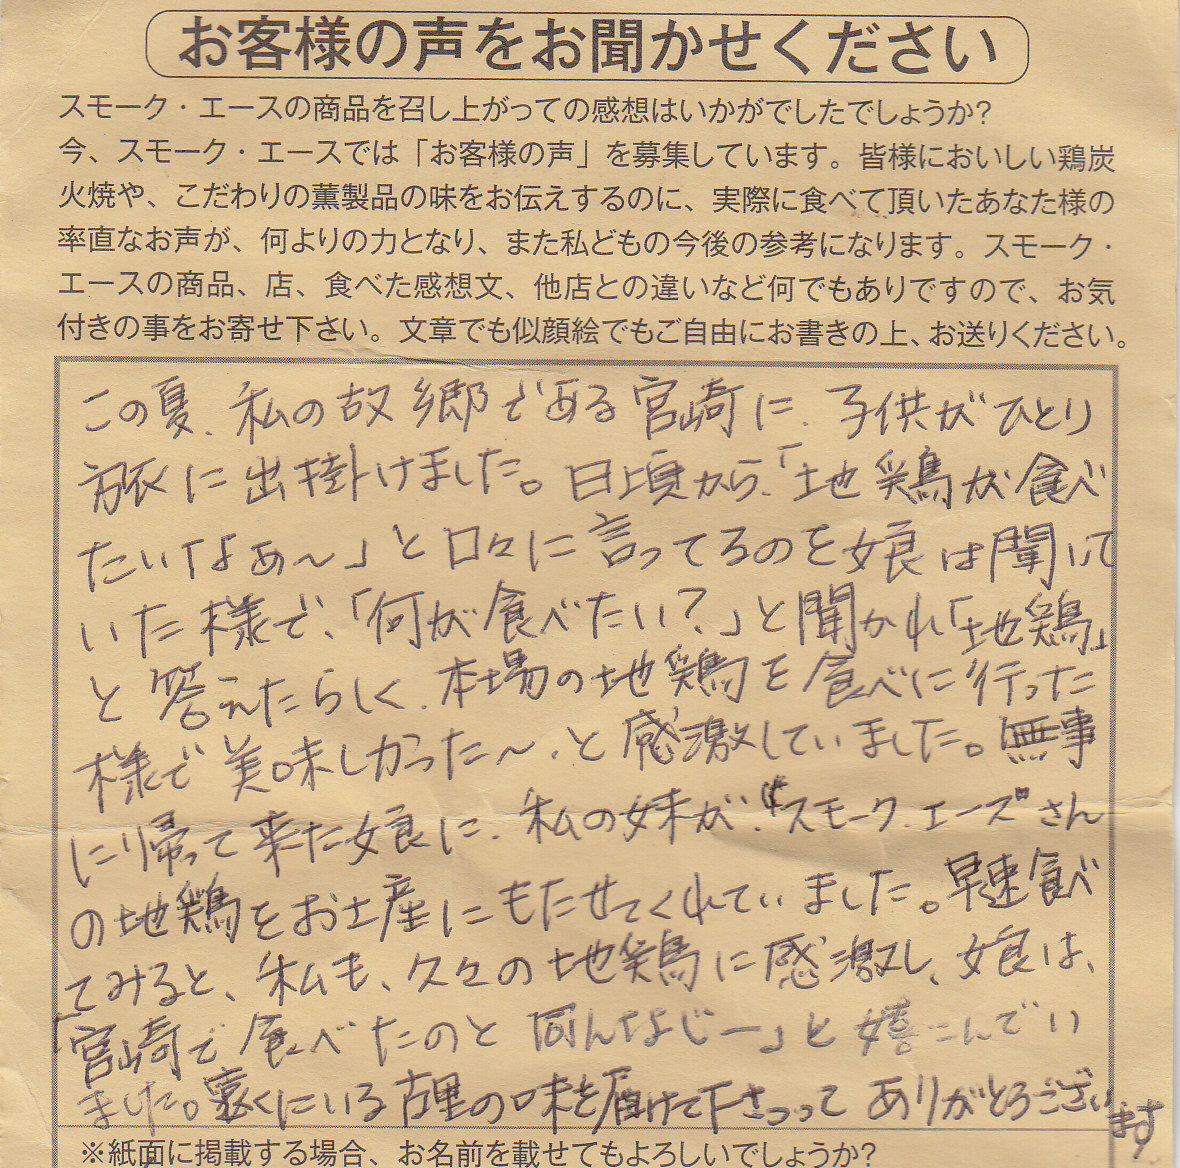 お客様の声をお聞かせください
スモーク・エースの商品を召し上がっての感想はいかがでしたでしょうか?
今、スモーク・エースでは「お客様の声」を募集しています。皆様においしい鶏炭
火焼や、こだわりの薫製品の味をお伝えするのに、実際に食べて頂いたあなた様の
率直なお声が、何よりの力となり、また私どもの今後の参考になります。スモーク・
エースの商品、店、食べた感想文、他店との違いなど何でもありですので、お気
付きの事をお寄せ下さい。文章でも似顔絵でもご自由にお書きの上、お送りください。
この夏、私の故郷である宮崎に、子供がひとり
旅に出掛けました。日頃から、「地鶏が食べ
たいなぁ〜」と口々に言ってるのを娘は聞いて
いた様で、「何が食べたい?」と聞かれ「地鶏」
と答えたらしく、本場の地鶏を食べに行った
様で美味しかった〜、と感激していました。無事
に帰って来た娘に、私の妹が、スモーク、エーズさん
の地鶏をお土産にもたせてくれていました。早速食べ
てみると、私も、久々の地鶏に感激し、娘は、
「宮崎で食べたのと同んなじー」と嬉こんでい
ました。遠くにいる古里の味を届けて下さって ありがとうござい
ます
※紙面に掲載する場合、お名前を載せてもよろしいでしょうか?